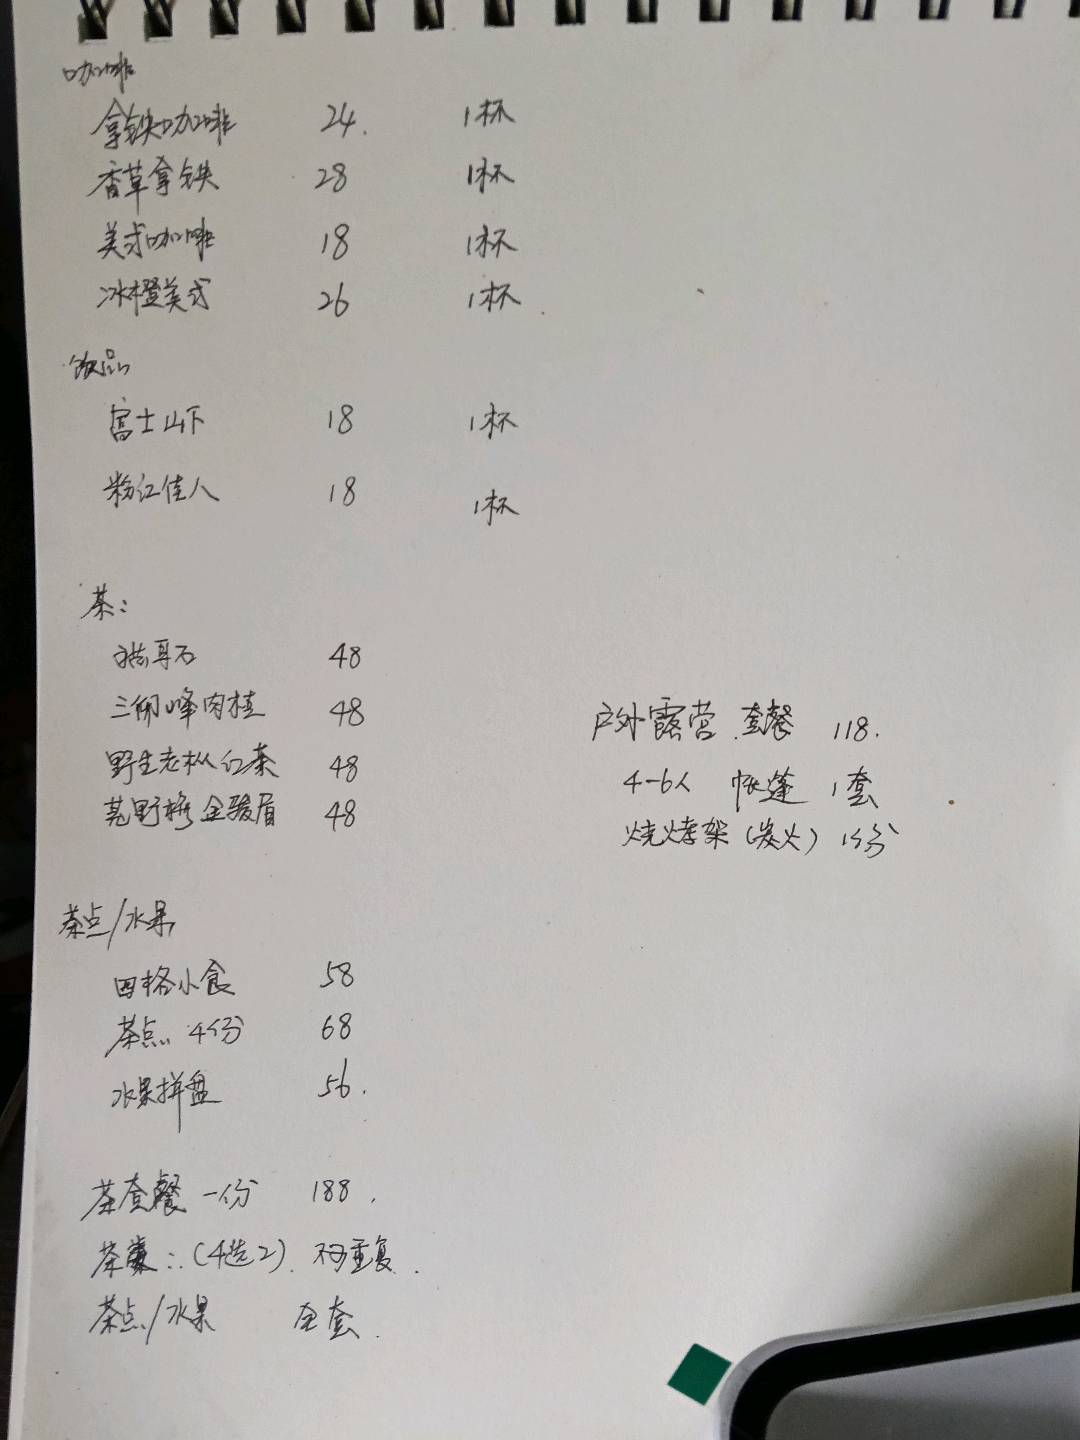 咖啡
拿铁咖啡 24. 1杯
香草拿铁 28 1杯
美式咖啡 18 1杯
冰橙美式 26 1杯.
饮品
富士山下 18 1杯
粉红佳人 18 1杯
茶:
猫耳石 48
三仰峰肉桂 48
野生老枞红茶 48
荒野 金骏眉 48
户外露营套餐 118.
4-6人 帐篷 1套
烧烤架(炭火) 1份
茶点/水果
四格小食 58
茶点 4份 68
水果拼盘 56.
茶套餐 一份 188.
茶:(4选2). 不可重复.
茶点/水果 全套.